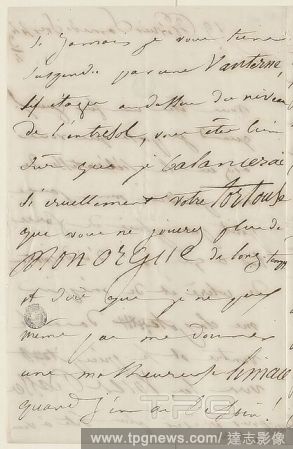 Si jamais je vous tiens
suspendu par une Vanterne,
4 étages au dessus du niveau
de l'entresol, vous êtes bien
sûr que je balancerai
si cruellement votre Tortouse
que vous ne jouerez plus de
MON ORGUE de long temps
et dire que je ne peux
même pas me donner
une malheureuse limace
quand j'en ai besoin!
TPG
www.tpgnews.com / 達志影像